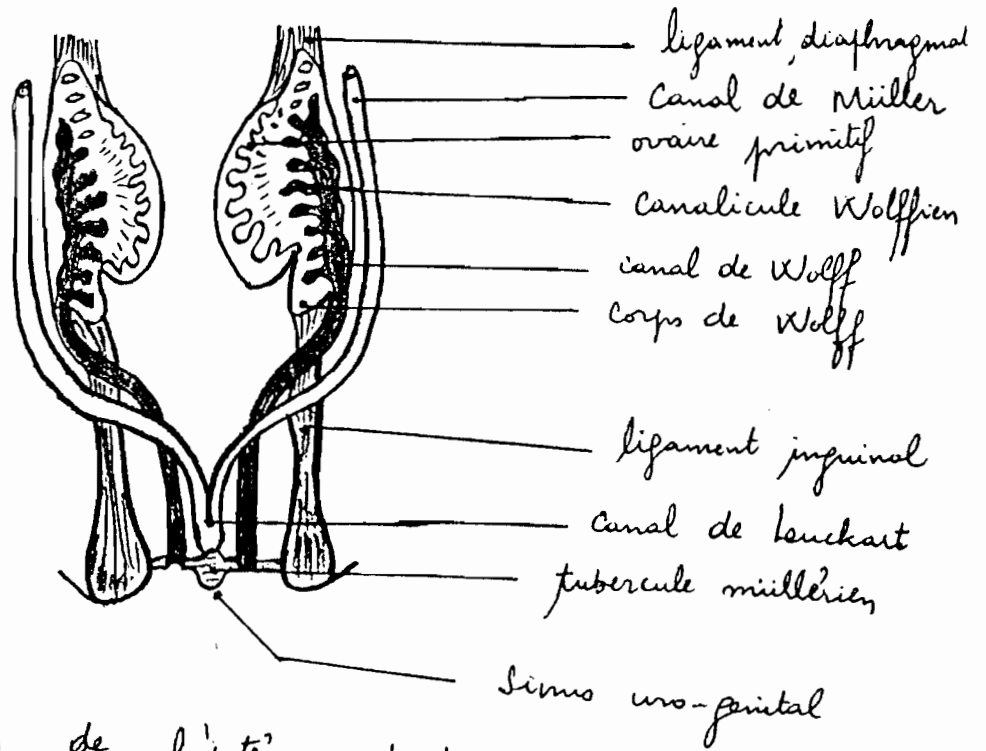 ligament diaphragmal
Canal de Müller
ovaire primitif
Canalicule Wolffien
canal de Wolff
Corps de Wolff
ligament inguinal
Canal de Leuckart
tubercule müllérien
Sinus uro-genital
de